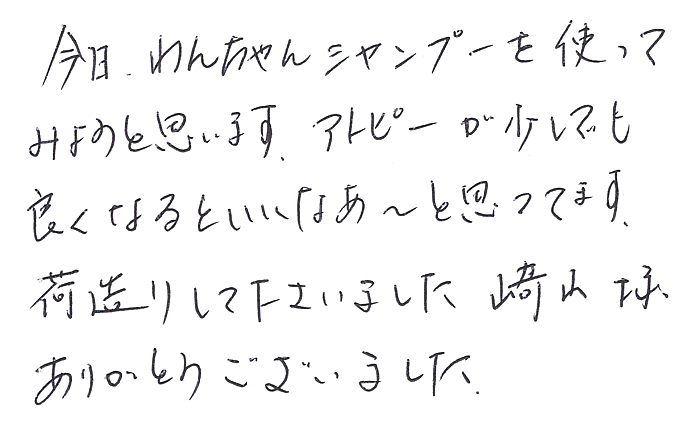 今日、わんちゃんシャンプーを使って
みようと思います。アトピーが少しでも
良くなるといいなあ〜と思ってます。
荷造りして下さいました 﨑山 様、
ありがとうございました。